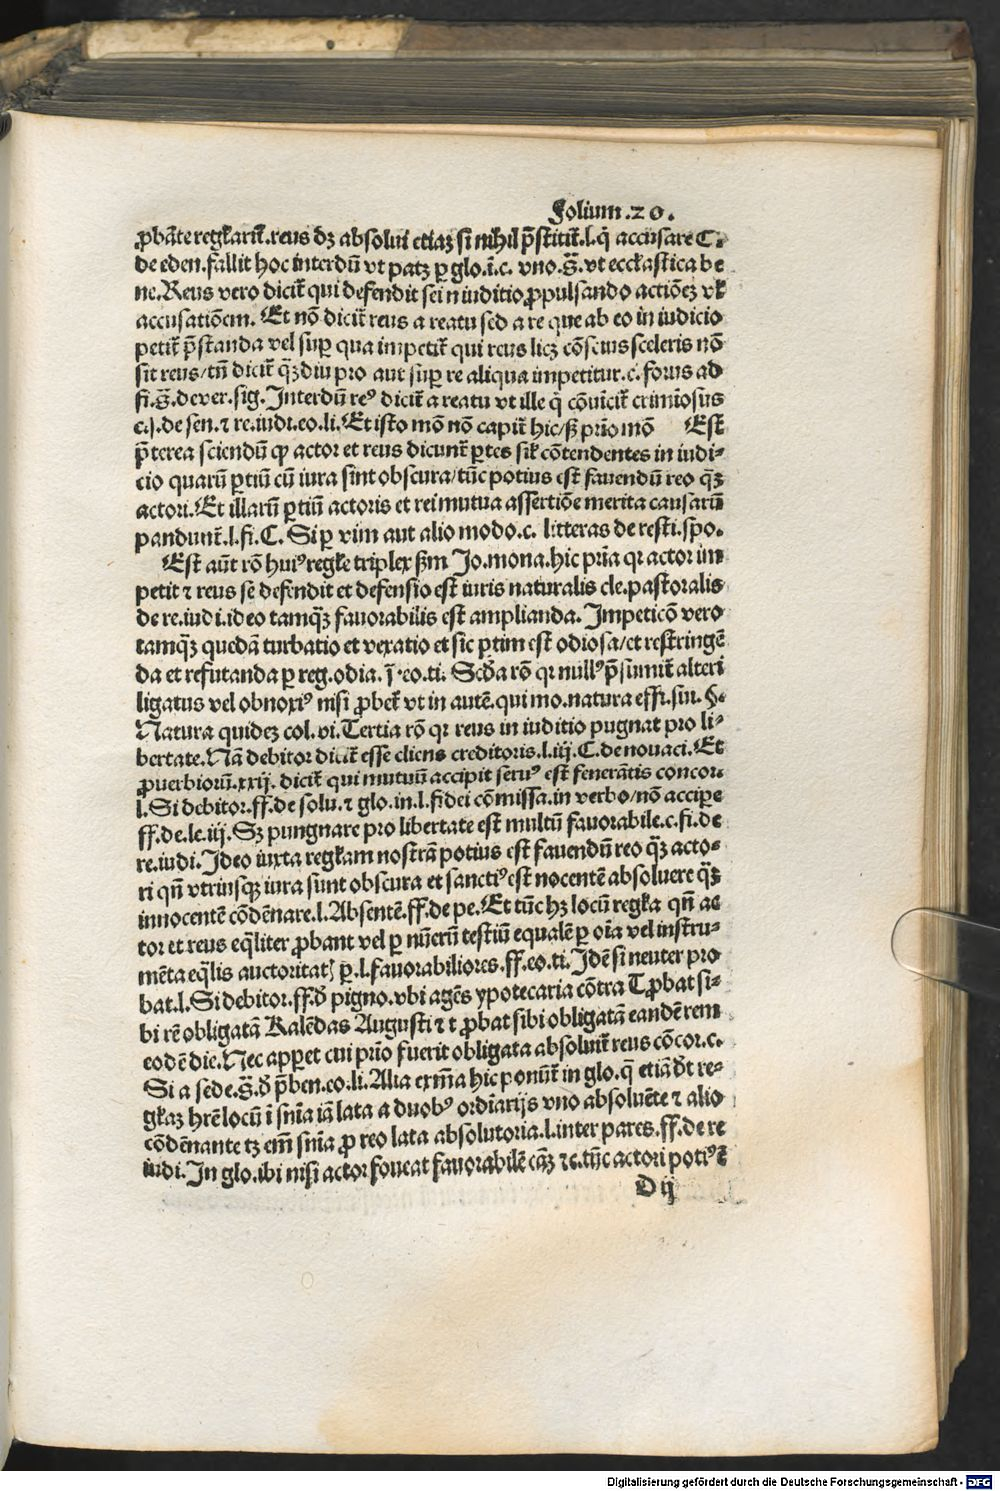 Folium .20.
ꝓbāte regl̄arit̄. reus dꝫ absolui etiaꝫ si nihil p̄stitit̄. l. q̄ accusare C.
de eden. fallit hoc interdū vt patꝫ ꝑ glo. i. c. vno. §. vt eccl̄astica be
ne. Reus vero dicit̄ qui defendit se in iuditio ꝓpulsando actiōeꝫ vl̄
accusatiōem. Et nō dicit̄ reus a reatu sed a re que ab eo in iudicio
petit̄ p̄standa vel suꝑ qua impetit̄ qui reus licꝫ cōscius sceleris nō
sit reus/tn̄ dicit̄ qꝫ̄diu pro aut suꝑ re aliqua impetitur. c. forus ad
fi. §. de ver. sig. Interdū reꝰ dicit̄ a reatu vt ille q̄ cōuicit̄ crimiōsus
c. j. de sen. ⁊ re. iudi. eo. li. Et isto mō nō capit̄ hic/sꝫ prio mō Est
p̄terea sciendū ꝙ actor et reus dicunt̄ ꝑtes sil̄ cōtendentes in iudi⸗
cio quarū ꝑtiū cū iura sint obscura/tūc potius est fauendū reo qꝫ̄
actori. Et illarū ꝑtiū actoris et rei mutua assertiōe merita causarū
pandunt̄. l. fi. C. Si ꝑ vim aut alio modo. c. litteras de resti. spo.
Est aūt rō huiꝰ regl̄e triplex sꝫm Jo. mona. hic pria qꝛ actor im
petit ⁊ reus se defendit et defensio est iuris naturalis cle. pastoralis
de re. iudi. ideo tamqꝫ̄ fauorabilis est amplianda. Impeticō vero
tamqꝫ̄ quedā turbatio et vexatio et sic ꝑtim est odiosa/et restringē
da et refutanda ꝑ reg. odia. j̄. eo. ti. Scd̄a rō qꝛ nullꝰ p̄sumit̄ alteri
ligatus vel obnoxiꝰ nisi ꝓbet̄ vt in autē. qui mo. natura effi. sui. §.
Natura quideꝫ col. vi. Tertia rō qꝛ reus in iuditio pugnat pro li⸗
bertate. Nā debitor dicit̄ esse cliens creditoris. l. iij. C. de nouaci. Et
ꝓuerbiorū. xxij. dicit̄ qui mutuū accipit seruꝰ est fenerātis concor.
l. Si debitor. ff. de solu. ⁊ glo. in. l. fidei cōmissa. in verbo/nō acciꝑe
ff. de. le. iij. Sꝫ pungnare pro libertate est multū fauorabile. c. fi. de
re. iudi. Ideo iuxta regl̄am nostrā potius est fauendū reo qꝫ̄ acto⸗
ri qn̄ vtriusqꝫ iura sunt obscura et sanctiꝰ est nocentē absoluere qꝫ̄
innocentē cōdēnare. l. Absentē. ff. de pe. Et tūc hꝫ locū regl̄a qn̄ ac
tor et reus eq̄liter ꝓbant vel ꝑ nūerū testiū equalē ꝑ oīa vel instru⸗
mēta eq̄lis auctoritatꝭ ꝑ. l. fauorabiliores. ff. eo. ti. Idē si neuter pro
bat. l. Si debitor. ff. ð pigno. vbi agēs ypotecaria cōtra T ꝓbat si⸗
bi rē obligatā Kalēdas Augusti ⁊ t ꝓbat sibi obligatā eandē rem
eodē die. Nec apꝑet cui prio fuerit obligata absoluit̄ reus cōcor. c.
Si a sede. §. ð p̄ben. eo. li. Alia exm̄a hic ponūt̄ in glo. q̄ etiā dt̄ re⸗
gl̄aꝫ hr̄e locū ī sn̄ia iā lata a duobꝰ ordīarijs vno absoluēte ⁊ alio
cōdēnante tꝫ em̄ sn̄ia ꝓ reo lata absolutoria. l. inter pares. ff. de re
iudi. In glo. ibi nisi actor foueat fauorabilē cāꝫ ⁊c. tūc actori potiꝰ ē
D ij
Digitalisierung gefördert durch die Deutsche Forschungsgemeinschaft - DFG